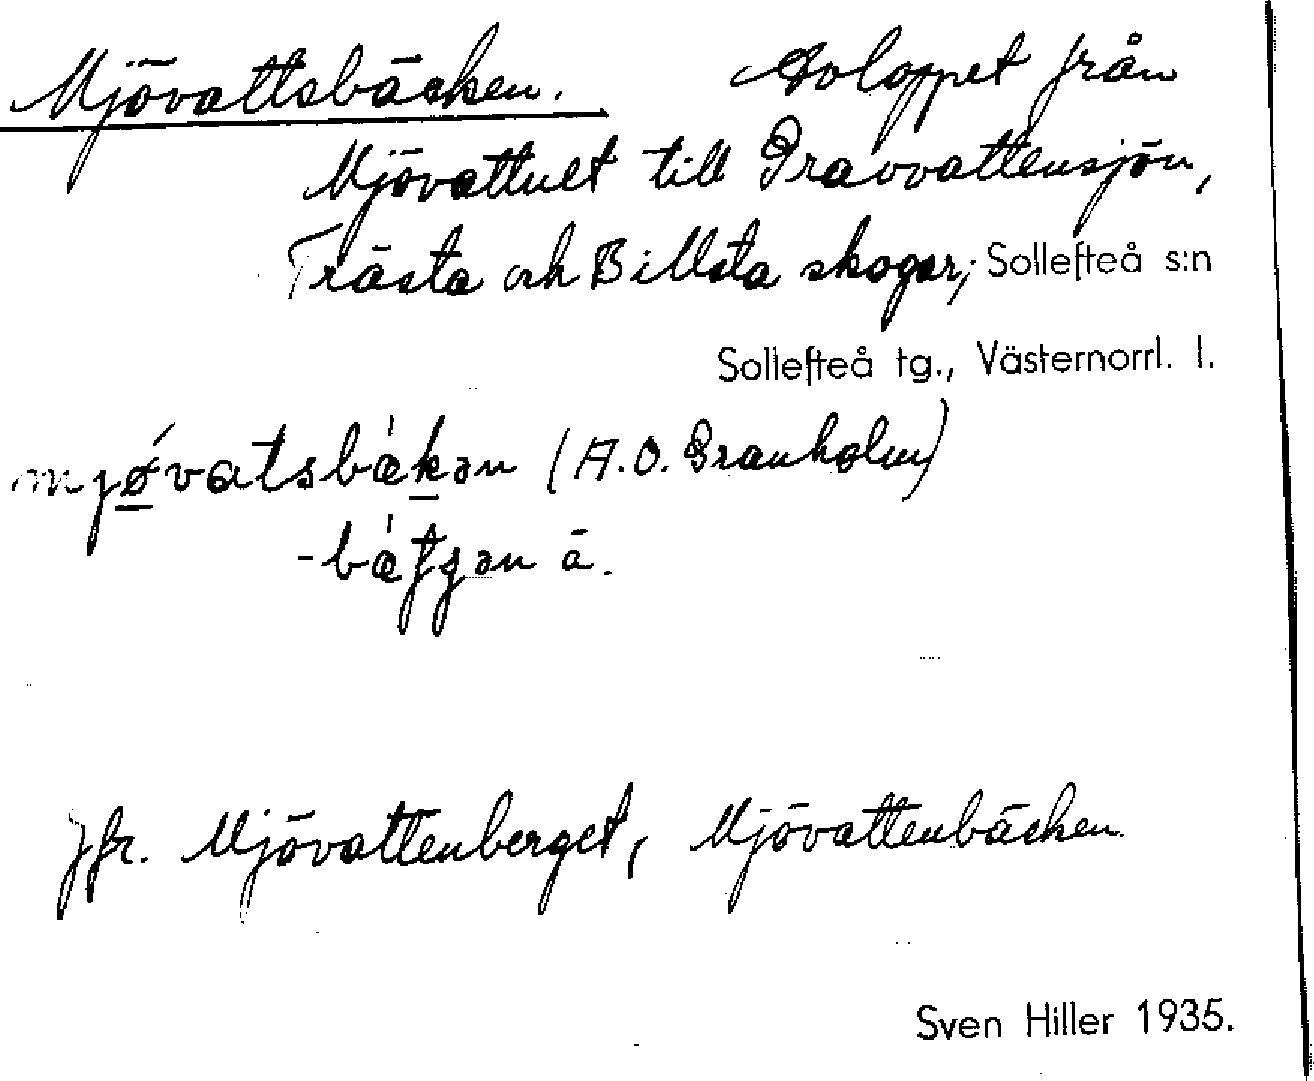 Mjövattsbäcken. Avloppet från
Mjövattnet till Gravvattensjön,
Trästa och Billsta skogar; Sollefteå s:n
Sollefteå tg., Västernorrl. l.
(A.O. Granholm)
ä.
Jfr. Mjövattenberget, Mjövattenbäcken
Sven Hiller 1935.